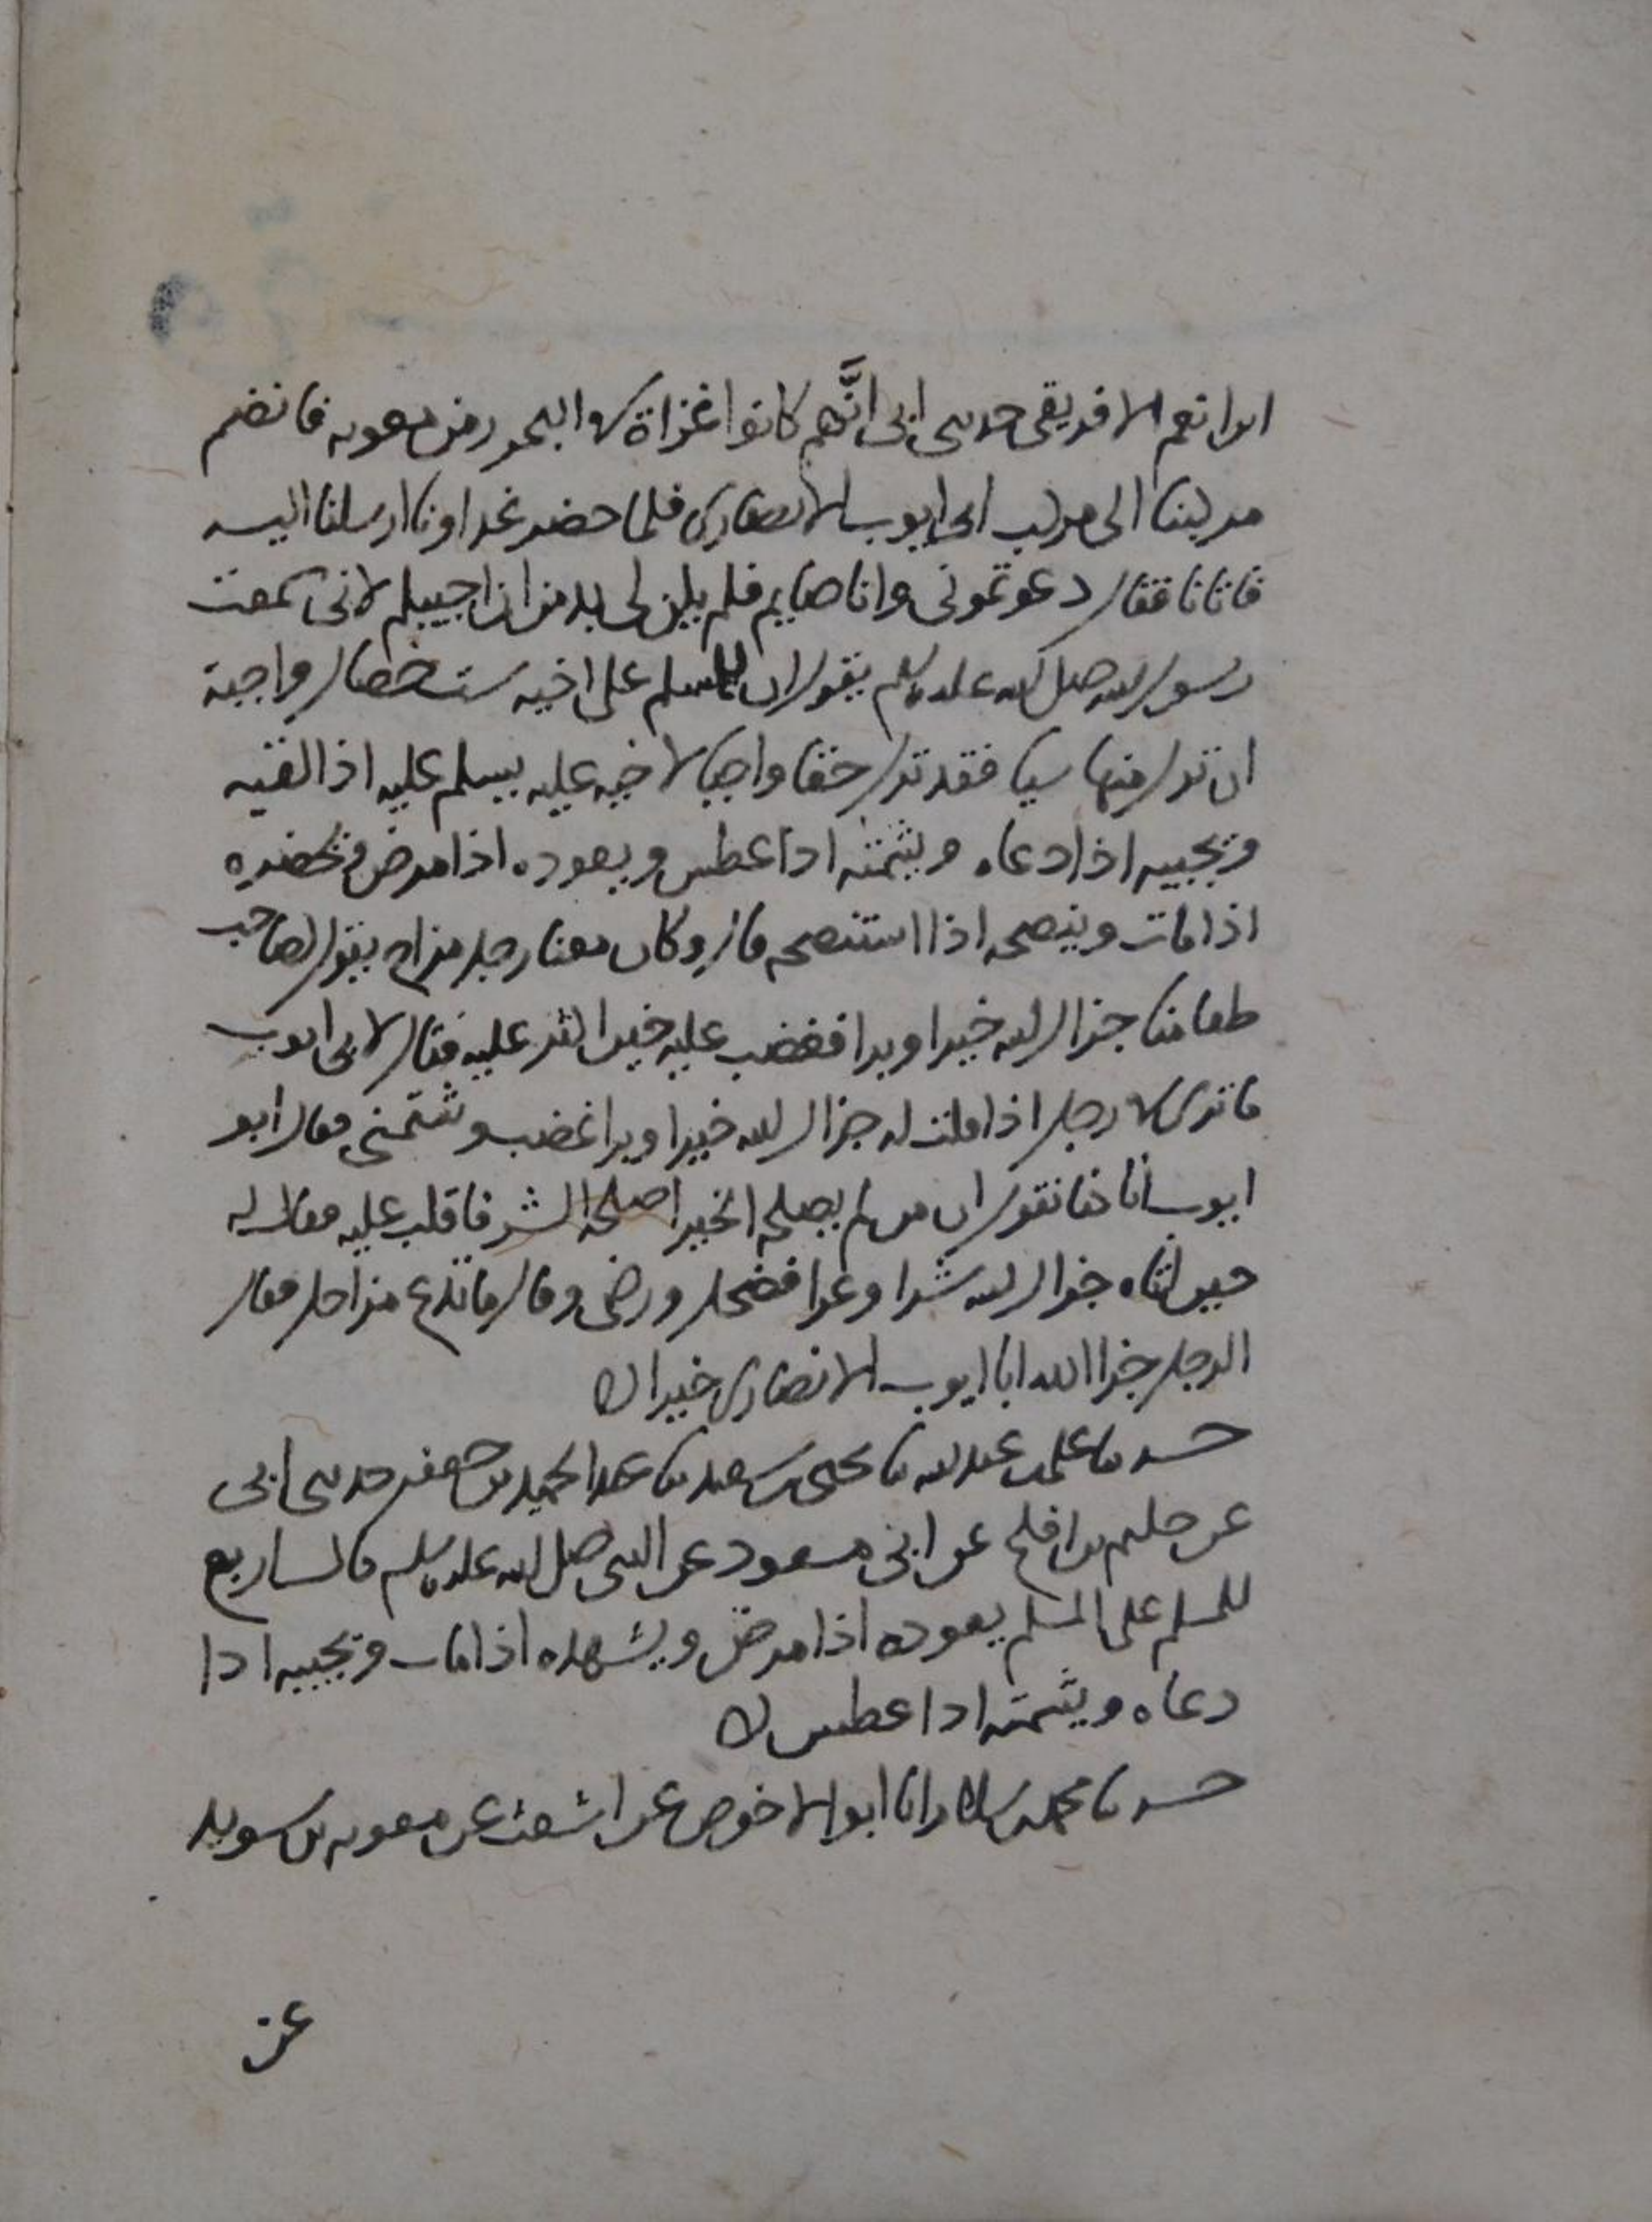 ابن انعم الافريقي حدثني ابي انَّهم كانوا غزاة في البحر زمن معوية فانضم
مركبنا الى مركب ابي ايوب الانصاري فلما حضر غداونا ارسلنا اليه
فاتانا فقال دعوتموني وانا صايم فلم يكن لي بد من ان اجيبكم لاني سمعت
رسول الله صلى الله عليه وسلم يقول ان للمسلم على اخيه ست خصال واجبة
ان ترك منها شيا فقد ترك حقا واجبا لاخيه عليه يسلم عليه اذا لقيه
ويجيبه اذا دعاه ويشمته اذا عطس ويعوده اذا مرض ويحضره
اذا مات وينصحه اذا استنصحه قال وكان معنا رجل مزاح يقول لصاحب
طعامنا جزاك الله خيرا وبرا فغضب عليه حين اكثر عليه فقال لابي ايوب
ما ترى في رجل اذا قلت له جزاك الله خيرا وبرا غضب وشتمني فقال ابو
ايوب انا كنا نقول ان من لم يصلحه الخير اصلحه الشر فاقلب عليه فقال له
حين اتاه جزاك الله شرا وعرا فضحك ورضي وقال ما تدع مزاحك فقال
الرجل جزا الله ابا ايوب الانصاري خيرا ه
حدثنا علي بن عبد الله نا يحيى بن سعيد نا عبد الحميد بن جعفر حدثني ابي
عن حكيم بن افلح عن ابي مسعود عن النبي صلى الله عليه وسلم قال اربع
للمسلم على المسلم يعوده اذا مرض ويشهده اذا مات ويجيبه اذا
دعاه ويشمته اذا عطس ه
حدثنا محمد بن سلام انا ابو الاحوص عن اشعث عن معوية بن سويد
عن